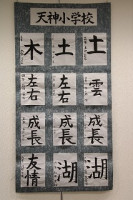 天神小学校
土
土
木
雲
左右
左右
成長
成長
成長
湖
湖
友情